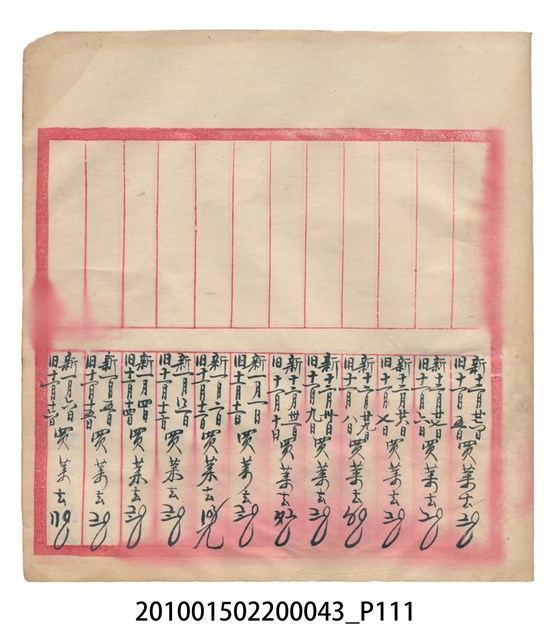 新十二月廿六日
旧十一月五日 買菜去
新十二月廿七日
旧十一月六日 買菜去
新十二月廿八日
旧十一月七日 買菜去
新十二月廿九日
旧十一月八日 買菜去
新十二月卅日
旧十一月九日 買菜去
新十二月卅一日
旧十一月十日 買菜去
新一月一日
旧十一月十一日 買菜去
新一月二日
旧十一月十二日 買菜去
新一月三日
旧十一月十三日 買菜去
新一月四日
旧十一月十四日 買菜去
新一月五日
旧十一月十五日 買菜去
新一月六日
旧十一月十六日 買菜去
201001502200043_P111